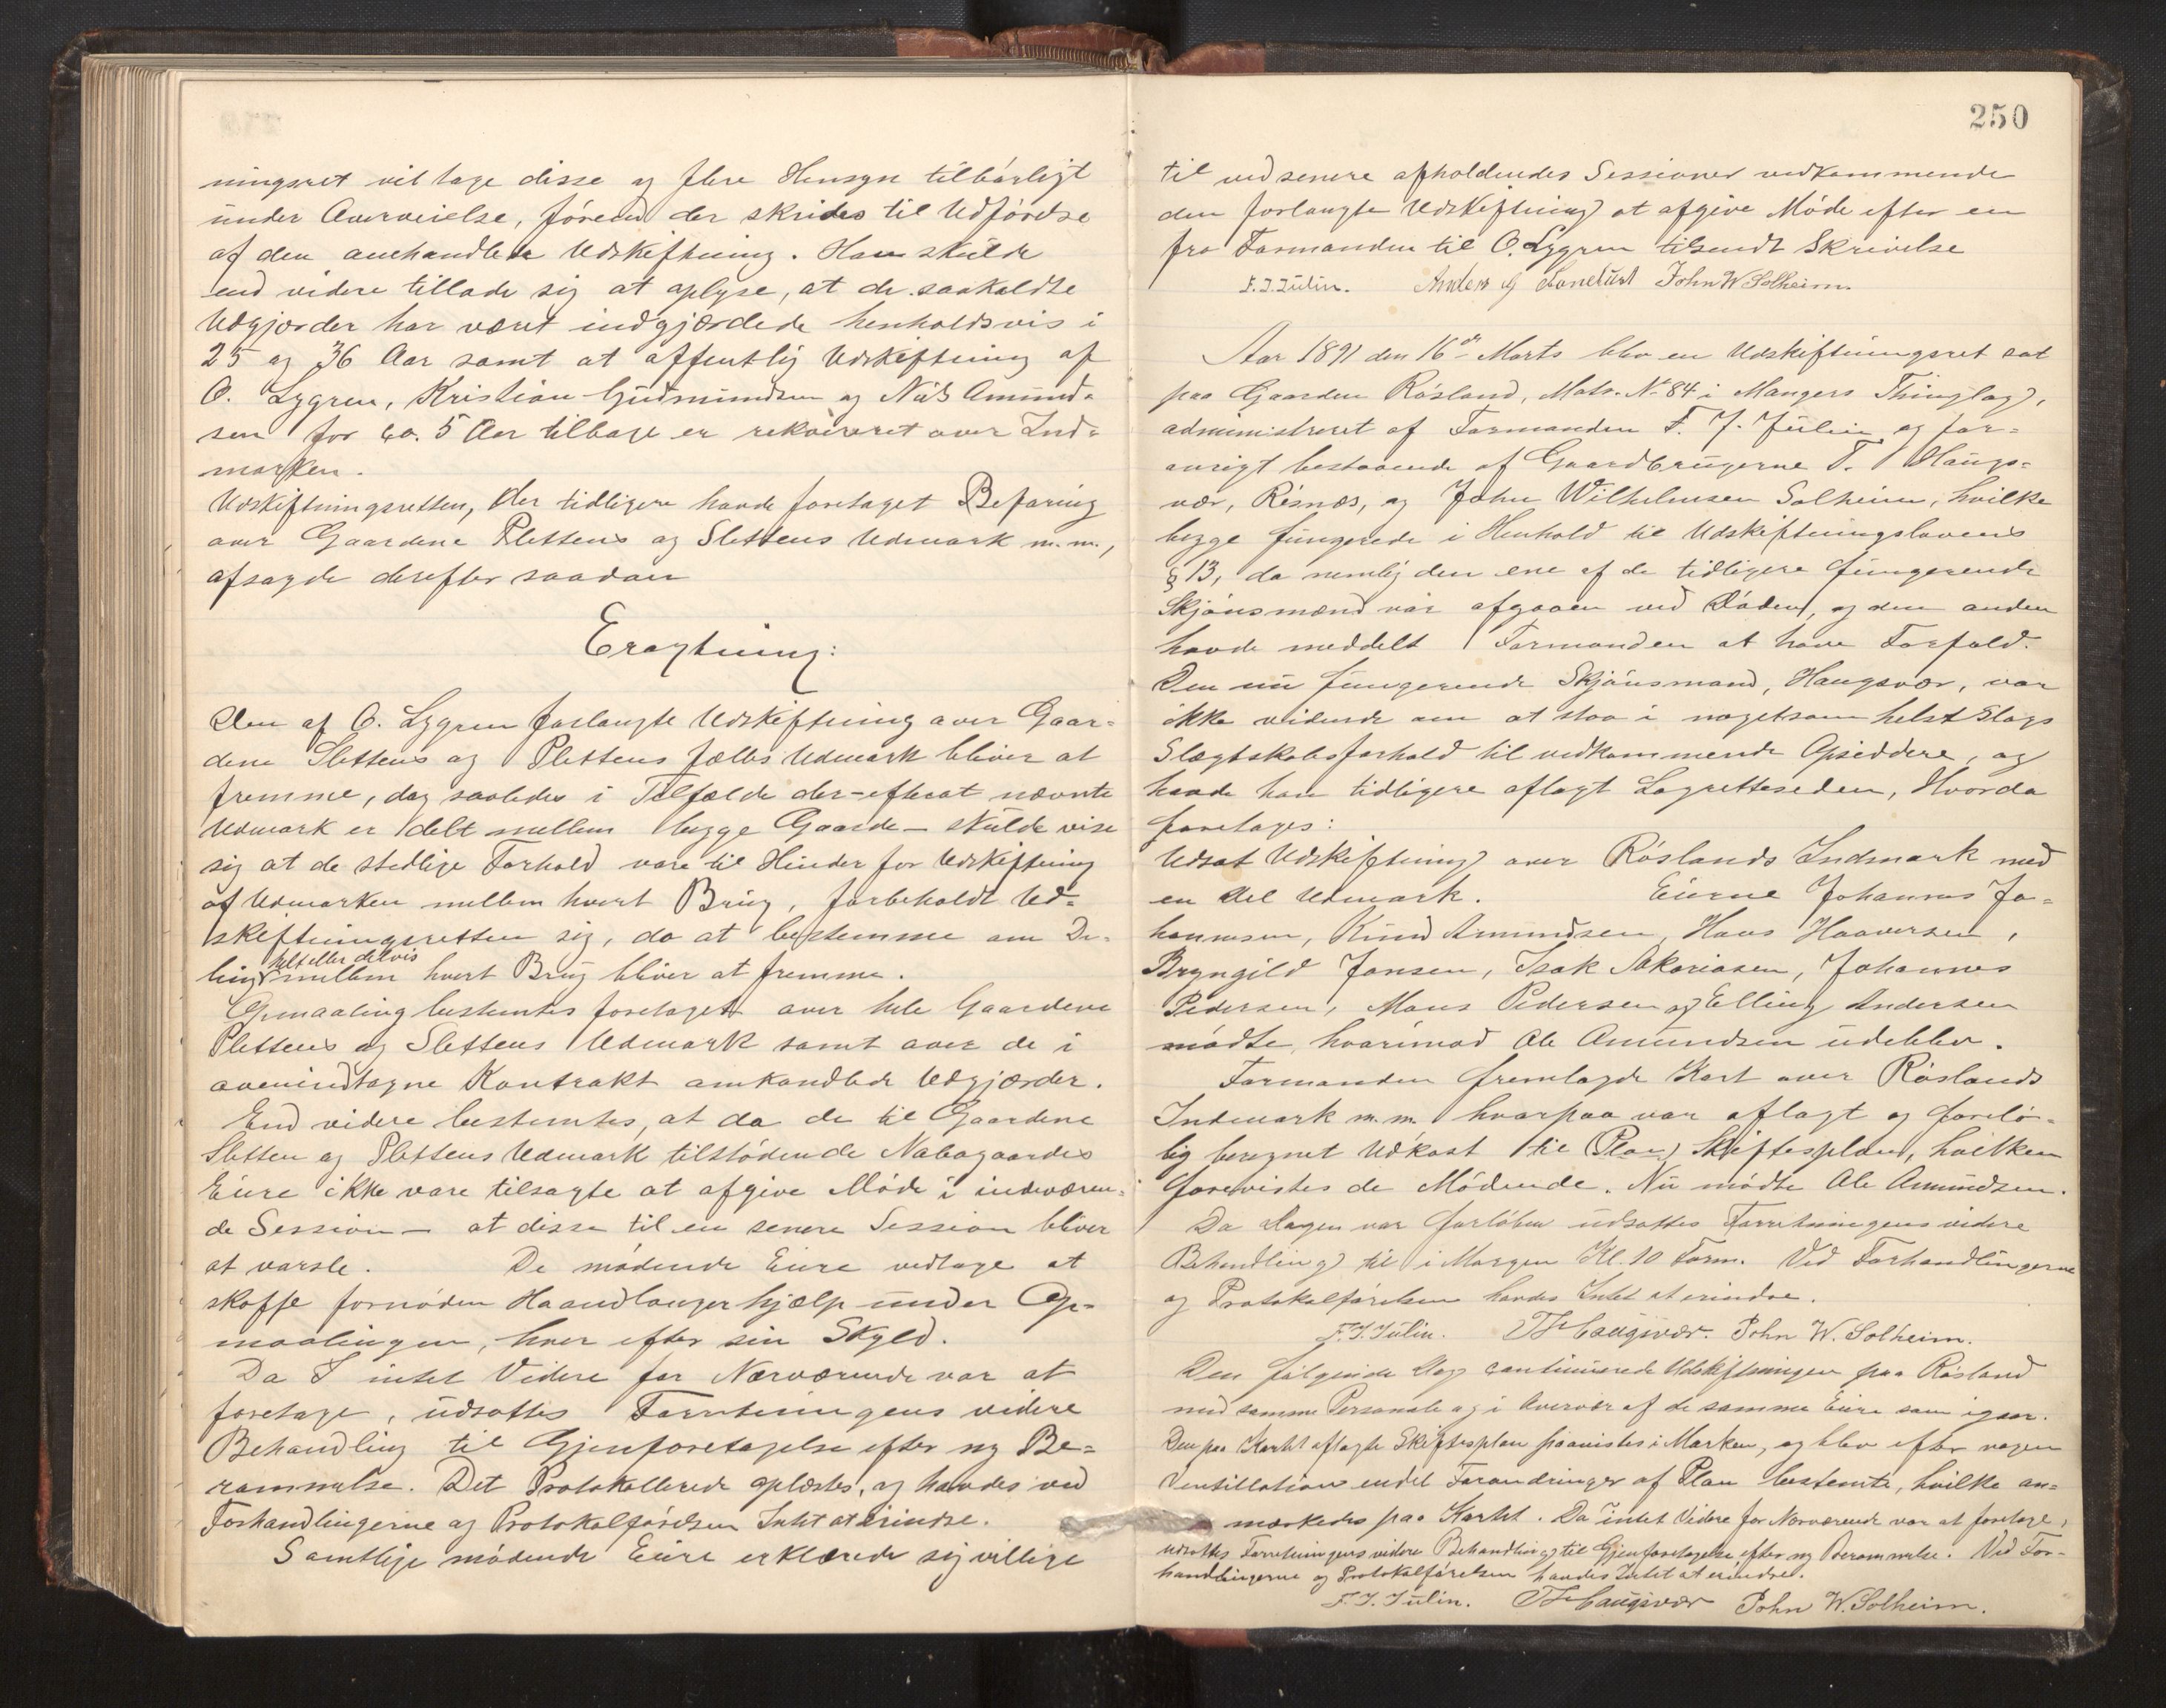 ningsret vil tage disse og flere Hensyn tilbørligt
under Overveielse, førend der skrides til Udførelse
af den omhandlede Udskiftning. Han skulde
end videre tillade sig at oplyse, at de saakaldte
Udgjørder har været indgjærdede henholdsvis i
25 og 36 Aar samt at offentlig Udskiftning af
O. Lygren, Kristian Gudmundsen og Nils Amund-
sen for ca. 5 Aar tilbage er rekvireret over Ind-
marken.
Udskiftningsretten, der tidligere havde foretaget Befaring
over Gaardene Plettens og Slettens Udmark m.m.,
afsagde derefter saadan
Eragtning:
Den af O. Lygren forlangte Udskiftning over Gaar-
dene Slettens og Plettens fælles Udmark bliver at
fremme, dog saaledes i Tilfælde der-efterat nævnte
Udmark er delt mellem begge Gaarde - skulde vise
sig at de stedlige Forhold vare til Hinder for Udskiftning
af Udmarken mellem hvert Brug, forbeholdt Ud-
skiftningsretten sig, da at bestemme om De-
helt eller delvis
ling mellem hvert Brug bliver at fremme.
Opmaaling bestemtes foretaget over hele Gaardene
Plettens og Slettens Udmark samt over de i
ovenindtagne Kontrakt omhandlede Udgjærder.
End videre bestemtes, at da de til Gaardene
Sletten og Plettens Udmark tilstødende Nabogaardes
Eiere ikke vare tilsagte at afgive Møde i indværen-
de Session - at disse til en senere Session bliver
at varsle. De mødende Eiere vedtage at
skaffe fornøden Haandlangerhjælp under Op-
maalingen, hver efter sin Skyld.
Da intet Videre for Nærværende var at
foretage, udsattes Forretningens videre
Behandling til Gjenforetagelse efter ny Be-
rammelse. Det Protokollerede oplæstes, og havdes ved
Forhandlingerne og Protokolførelsen Intet at erindre.
Samtlige mødende Eiere erklærede sig villige
250
til ved senere afholdendes Sessioner vedkommende
den forlangte Udskiftning at afgive Møde efter en
fra Formanden til O. Lygren tilsendt Skrivelse
F. J. Julin. Anders J John W Solheim.
Aar 1891 den 16de Marts blev en Udskiftningsret sat
paa Gaarden Røsland, Matr. No 84 i Mangers Thinglag,
administreret af Formanden F. J. Julin og for-
øvrigt bestaaende af Gaardbrugerne T. Haugs-
vær, Risnæs, og John Wilhelmsen Solheim, hvilke
begge fungerede i Henhold til Udskiftningslovens
§ 13, da nemlig den ene af de tidligere fungerende
Skjønsmænd var afgaaen ved Døden, og den anden
havde meddelt Formanden at have Forfald.
Den nu fungerende Skjønsmand, Haugsvær, var
ikke vidende om at staa i nogetsom helst Slags
Slægtskabsforhold til vedkommende Opsiddere, og
havde han tidligere aflagt Lagretteseden, Hvorda
foretages:
Udsat Udskiftning over Røslands Indmark med
en del Udmark. Eierne Johannes Jo-
hannesen, Knud Amundsen, Hans Haaversen,
Bryngild Jansen, Isak Sakariasen, Johannes
Pedersen, Mons Pedersen og Elling Andersen
mødte, hvorimod Ole Amundsen udeblev.
Formanden fremlagde Kart over Røslands
Indmark m.m. hvorpaa var aflagt og foreløbi-
lig beregnet Udkast til (Plan) Skiftesplan, hvilken
forevistes de Mødende. Nu mødte Ole Amundsen.
Da Dagen var forløben udsattes Forretningens videre
Behandling til i Morgen Kl. 10 Form. Ved Forhandlingerne
og Protokolførelsen havdes Intet at erindre.
F. J. Julin. T Haugsvær. John W. Solheim.
Den følgende Dag continuerede Udskiftningen paa Røsland
med samme Personale og i Overvær af de samme Eiere som igaar.
Den paa Kartet aflagte Skiftesplan paavistes i Marken, og blev efter nogen
Ventillation endel Forandringer af Plan bestemte, hvilke an-
mærkedes paa Kartet. Da intet Videre for Nærværende var at foretage,
udsattes Forretningens videre Behandling til Gjenforetagelse efter ny Berammelse. Ved For-
handlingerne og Protokolførelsen havdes Intet at erindre.
F. J. Julin. T Haugsvær John W. Solheim.